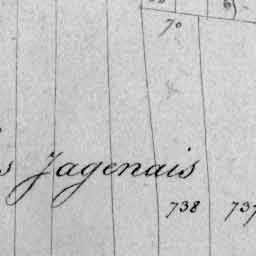 70
s Jagenais
738 737